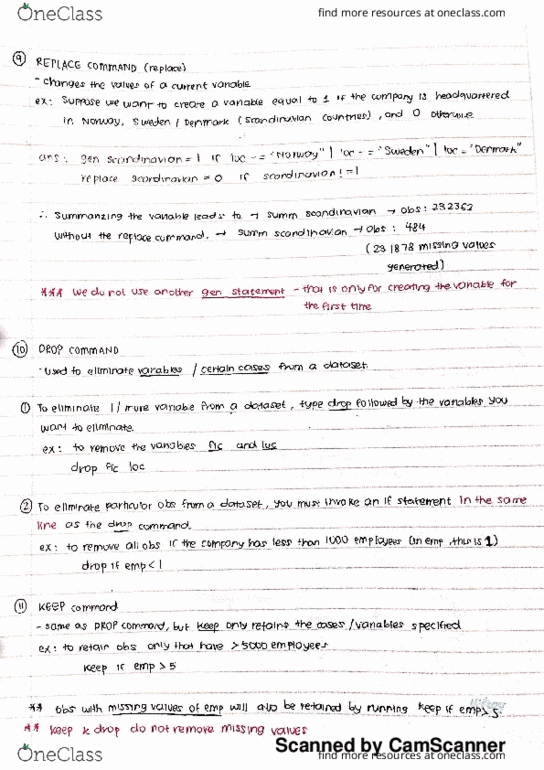 OneClass
find more resources at oneclass.com
⑨ REPLACE COMMAND (replace)
- changes the values of a current variable
ex: Suppose we want to create a variable equal to 1 if the company is headquartered
in Norway, Sweden / Denmark (Scandinavian countries), and 0 otherwise
ans: gen scandinavian = 1 if loc == "Norway" | loc == "Sweden" | loc = "Denmark"
replace scandinavian = 0 if scandinavian != 1
∴ Summarizing the variable leads to → summ scandinavian → obs: 232362
without the replace command, → summ scandinavian → obs: 484
(231878 missing values
generated)
*** we do not use another gen statement - that is only for creating the variable for
the first time
⑩ DROP COMMAND
- used to eliminate variables / certain cases from a dataset
① To eliminate 1 / more variable from a dataset, type drop followed by the variables you
want to eliminate.
ex: to remove the variables fic and loc
drop fic loc
② To eliminate particular obs from a dataset, you must invoke an if statement in the same
line as the drop command.
ex: to remove all obs if the company has less than 1000 employees (in emp, this is 1)
drop if emp < 1
⑪ KEEP command
- same as DROP command, but keep only retains the cases / variables specified
ex: to retain obs only that have > 5000 employees
keep if emp > 5
** obs with missing values of emp will also be retained by running keep if emp > 5.
** keep & drop do not remove missing values
Scanned by CamScanner
OneClass
find more resources at oneclass.com